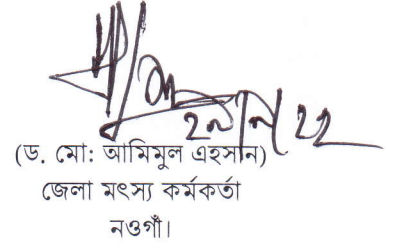 (ড. মো: আমিমুল এহসান)
জেলা মৎস্য কর্মকর্তা
নওগাঁ।